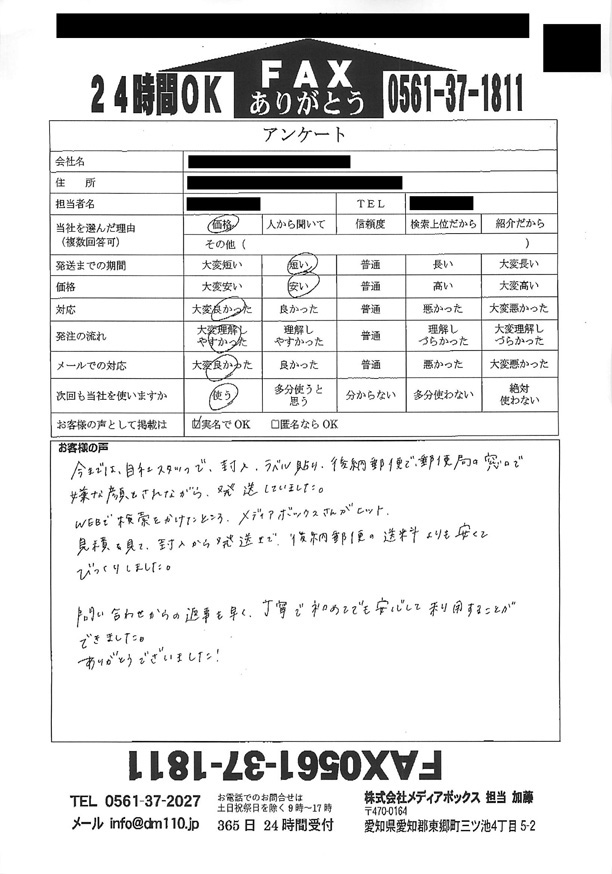 24時間OK
FAX
ありがとう
0561-37-1811
アンケート
会社名
住 所
担当者名 TEL
当社を選んだ理由 (複数回答可) 価格 人から聞いて 信頼度 検索上位だから 紹介だから
その他 ( )
発送までの期間 大変短い 短い 普通 長い 大変長い
価格 大変安い 安い 普通 高い 大変高い
対応 大変良かった 良かった 普通 悪かった 大変悪かった
発注の流れ 大変理解しやすかった 理解しやすかった 普通 理解しづらかった 大変理解しづらかった
メールでの対応 大変良かった 良かった 普通 悪かった 大変悪かった
次回も当社を使いますか 使う 多分使うと思う 分からない 多分使わない 絶対使わない
お客様の声として掲載は ☑実名でOK □匿名ならOK
お客様の声
今までは、自社スタッフで、封入、ラベル貼り、後納郵便で、郵便局の窓口で
嫌な顔をされながら、発送していました。
WEBで検索をかけたところ、メディアボックスさんがヒット。
見積を見て、封入から発送まで、後納郵便の送料よりも安くて
びっくりしました。
問い合わせからの返事も早く、丁寧で初めてでも安心して利用することが
できました。
ありがとうございました!
FAX0561-37-1811
TEL 0561-37-2027
メール info@dm110.jp
お電話でのお問合せは
土日祝祭日を除く9時~17時
365日24時間受付
株式会社メディアボックス 担当 加藤
〒470-0164
愛知県愛知郡東郷町三ツ池4丁目5-2